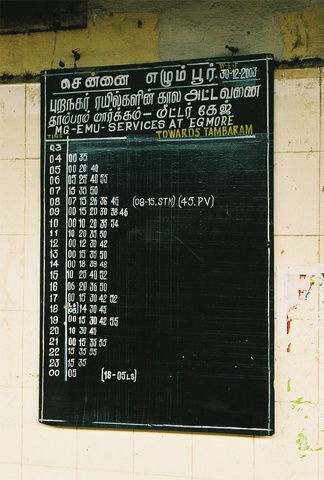 சென்னை எழும்பூர். W.E.F 30-12-2003
புறநகர் ரயில்களின் கால அட்டவணை
தாம்பரம் மார்க்கம் - மீட்டர் கேஜ்
MG-EMU-SERVICES AT EGMORE
TIME TOWARDS TAMBARAM
03
04 00 35
05 00 20 40
06 05 25 40 55
07 15 35 50
08 07 15 26 36 45 (08-15.STM) (45.PV)
09 00 15 20 30 38 46
10 00 10 20 36 54
11 10 20 35 50
12 00 12 30 42
13 00 15 35 50
14 00 18 38 48
15 10 25 40 52
16 06 20 36 50
17 00 15 30 42 52
18 05 14 30 45
19 00 15 30 42 55
20 10 30 45
21 00 15 35 55
22 15 35 55
23 15 35
00 05 (18-05.LS)